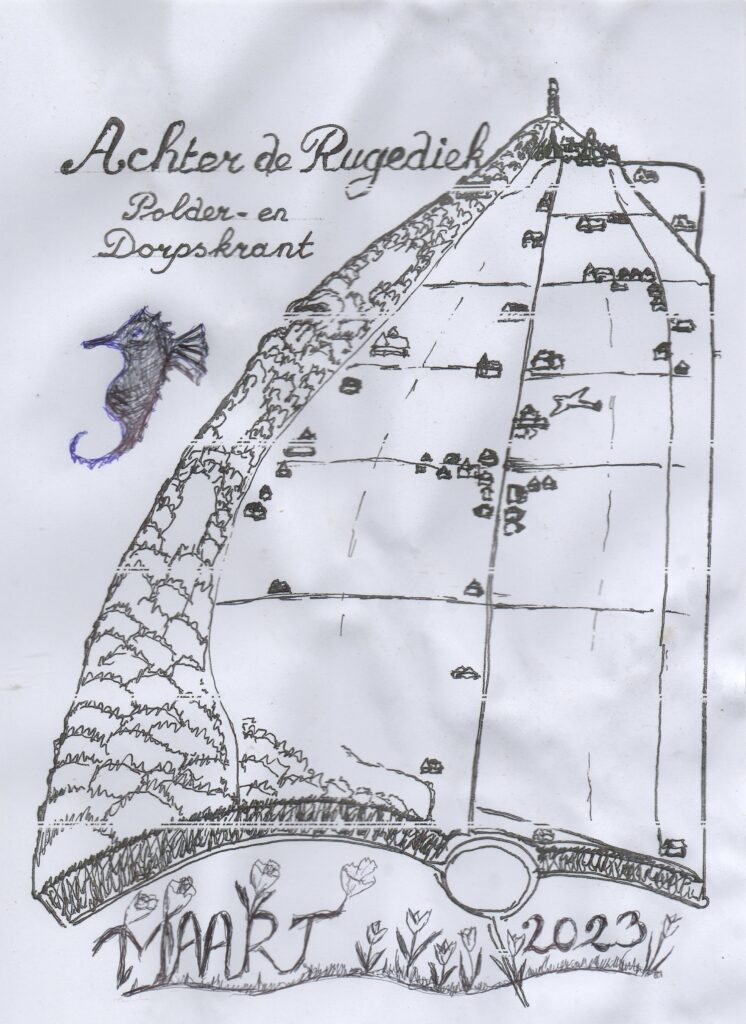 Achter de Rugediek
Polder- en
Dorpskrant
MAART 2023